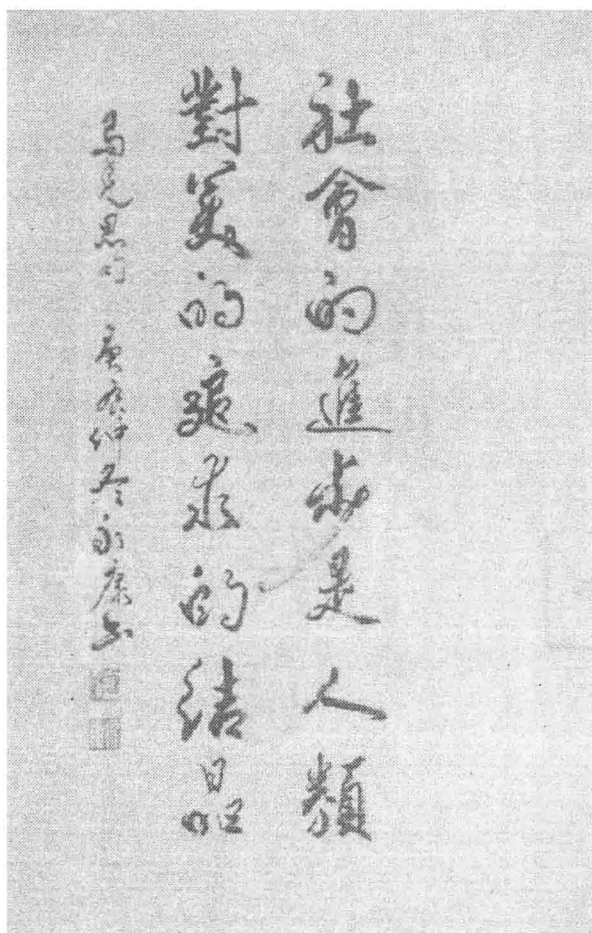 社會的進步是人類
對美的追求的結晶
馬克思句 庚辰仲冬永康書